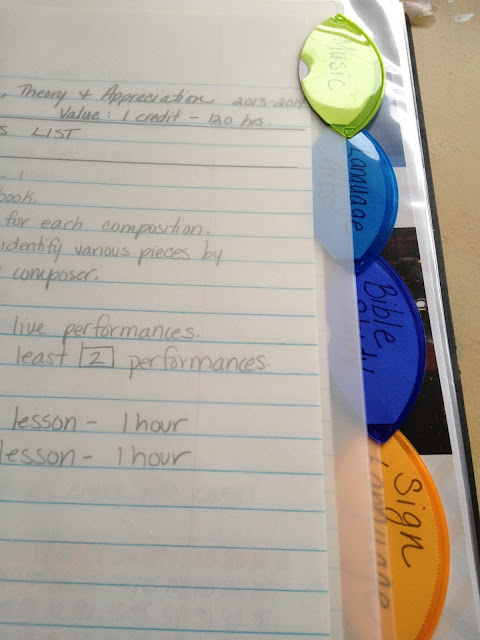 , Theory & Appreciation 2013-2014
Value: 1 credit - 120 hrs.
S LIST
1
book.
for each composition.
identify various pieces by
composer.
live performances.
least 2 performances.
lesson - 1 hour
lesson - 1 hour
Music
Language
Bible
Sign
Language